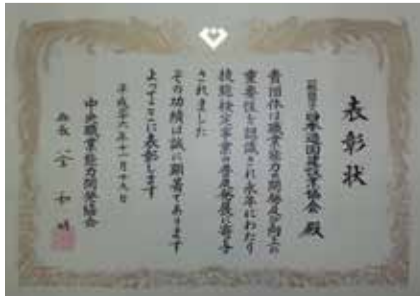 表彰状
一般社団法人日本造園建設業協会 殿
貴団体は職業能力の開発及び向上の
重要性を認識され永年にわたり
技能検定事業の普及発展に寄与
されました
その功績は誠に顕著であります
よってここに表彰します
平成二十六年十一月十九日
中央職業能力開発協会
会長